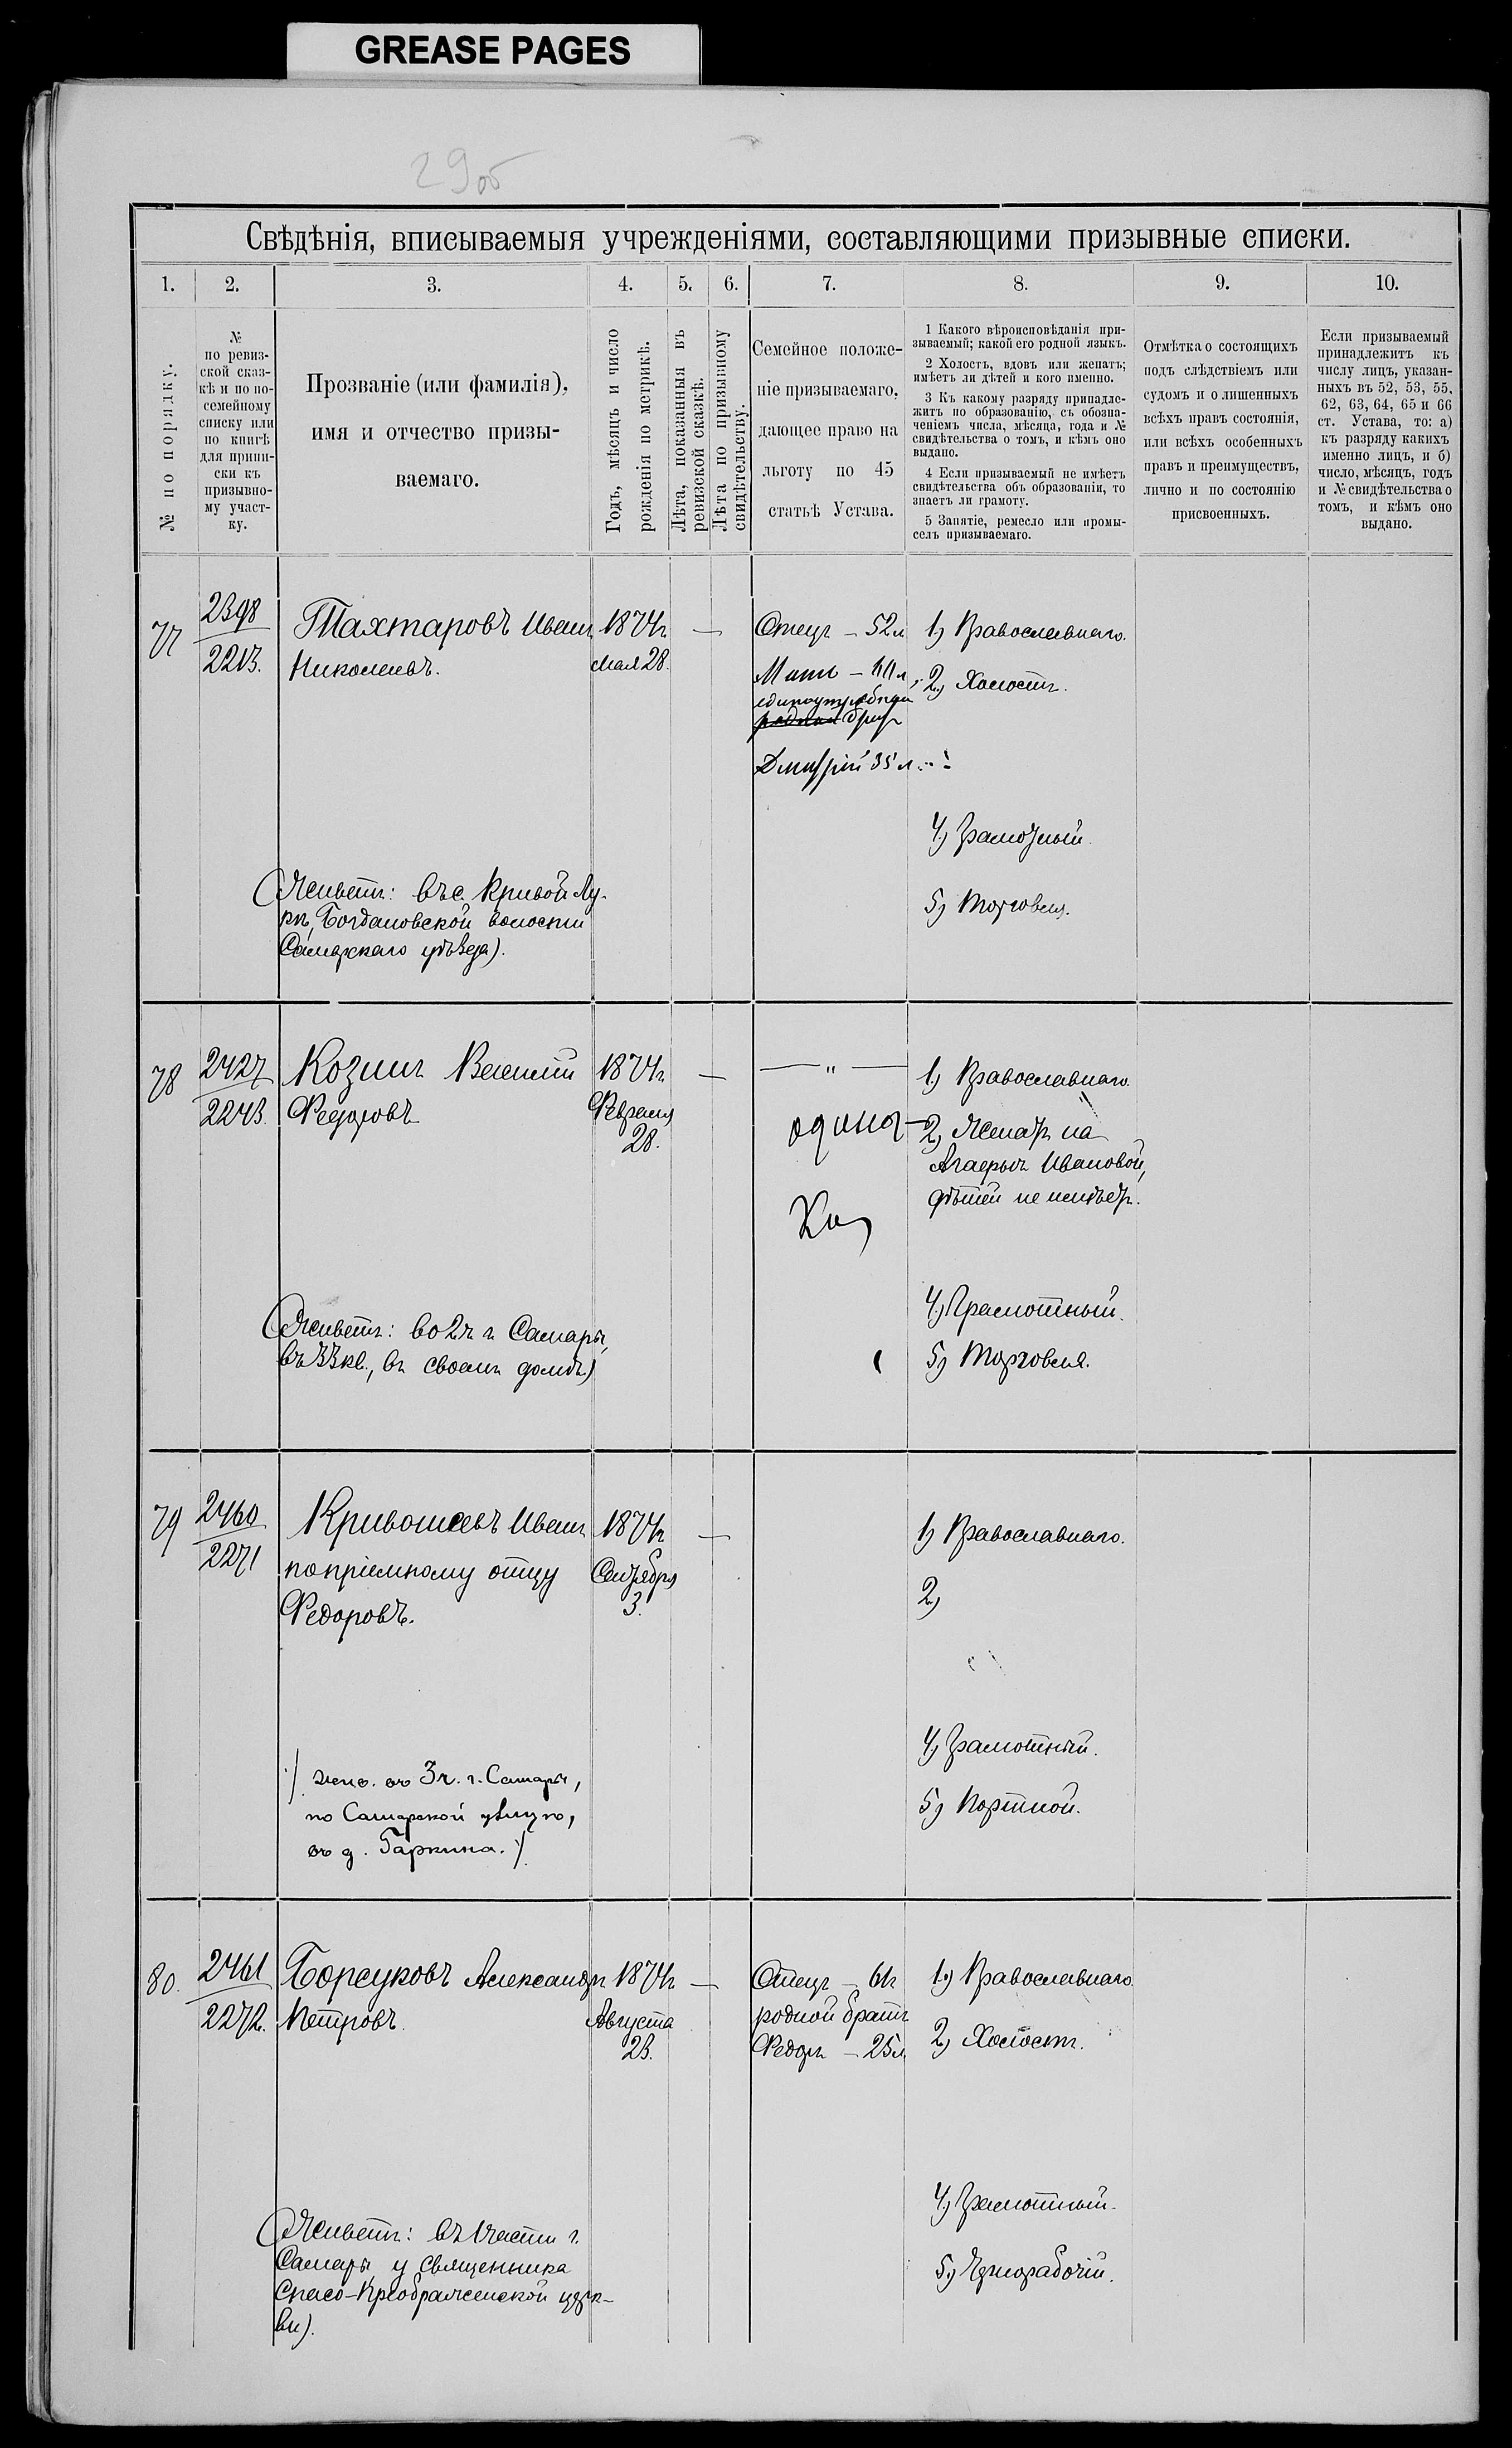 GREASE PAGES
29об
Свѣдѣнія, вписываемыя учрежденіями, составляющими призывные списки.
1. 2. 3. 4. 5. 6. 7. 8. 9. 10.
№ по порядку.
№
по ревиз-
ской сказ-
кѣ и по по-
семейному
списку или
по книгѣ
для припи-
ски къ
призывно-
му участ-
ку.
Прозваніе (или фамилія),
имя и отчество призы-
ваемаго.
Годъ, мѣсяцъ и число
рожденія по метрикѣ.
Лѣта, показанныя въ
ревизской сказкѣ.
Лѣта по призывному
свидѣтельству.
Семейное положе-
ніе призываемаго,
дающее право на
льготу по 45
статьѣ Устава.
1 Какого вѣроисповѣданія при-
зываемый; какой его родной языкъ.
2 Холостъ, вдовъ или женатъ;
имѣетъ ли дѣтей и кого именно.
3 Къ какому разряду принадле-
житъ по образованію, съ обозна-
ченіемъ числа, мѣсяца, года и №
свидѣтельства о томъ, и кѣмъ оно
выдано.
4 Если призываемый не имѣетъ
свидѣтельства объ образованіи, то
знаетъ ли грамоту.
5 Занятіе, ремесло или промы-
селъ призываемаго.
Отмѣтка о состоящихъ
подъ слѣдствіемъ или
судомъ и о лишенныхъ
всѣхъ правъ состоянія,
или всѣхъ особенныхъ
правъ и преимуществъ,
лично и по состоянію
присвоенныхъ.
Если призываемый
принадлежитъ къ
числу лицъ, указан-
ныхъ въ 52, 53, 55,
62, 63, 64, 65 и 66
ст. Устава, то: а)
къ разряду какихъ
именно лицъ, и б)
число, мѣсяцъ, годъ
и № свидѣтельства о
томъ, и кѣмъ оно
выдано.
77
2398
2213.
Тахтаровъ Иванъ
Николаевъ.
1874г.
Мая 28.
—
Отецъ – 52л
Мать – 44л.
единоутробный
родной братъ
Дмитрій 35 л.
1) Православнаго.
2) Холостъ.
4) Грамотный.
5) Торговля.
(Живетъ: въ с. Кривой Лу-
кѣ, Богдановской волости
Самарскаго уѣзда).
78
2427
2243.
Козинъ Василій
Федоровъ
1874г.
Февраля
28.
—
— „ —
одинъ
1) Православнаго.
2) Женатъ на
Агаѳьѣ Ивановой,
дѣтей не имѣетъ.
4) Грамотный.
5) Торговля.
(Живетъ: во 2ч г. Самары,
въ 33кв., въ своемъ домѣ)
79
2460
2271
Кривошеевъ Иванъ
по пріемному отцу
Федоровъ.
1874г.
Сентября
3.
—
1) Православнаго.
2)
4) Грамотный.
5) Портной.
/ жив. въ 3ч. г. Самары,
по Самарской улицѣ,
въ д. Гаркина. /
80.
2461
2272.
Борсуковъ Александръ
Петровъ.
1874г.
Августа
23.
—
Отецъ – 61г.
родной братъ
Федоръ – 25л
1) Православнаго
2) Холостъ.
4) Грамотный.
5) Чернорабочій.
(Живетъ: въ 1 части г.
Самары, у священника
Спасо-Преображенской церк-
ви).